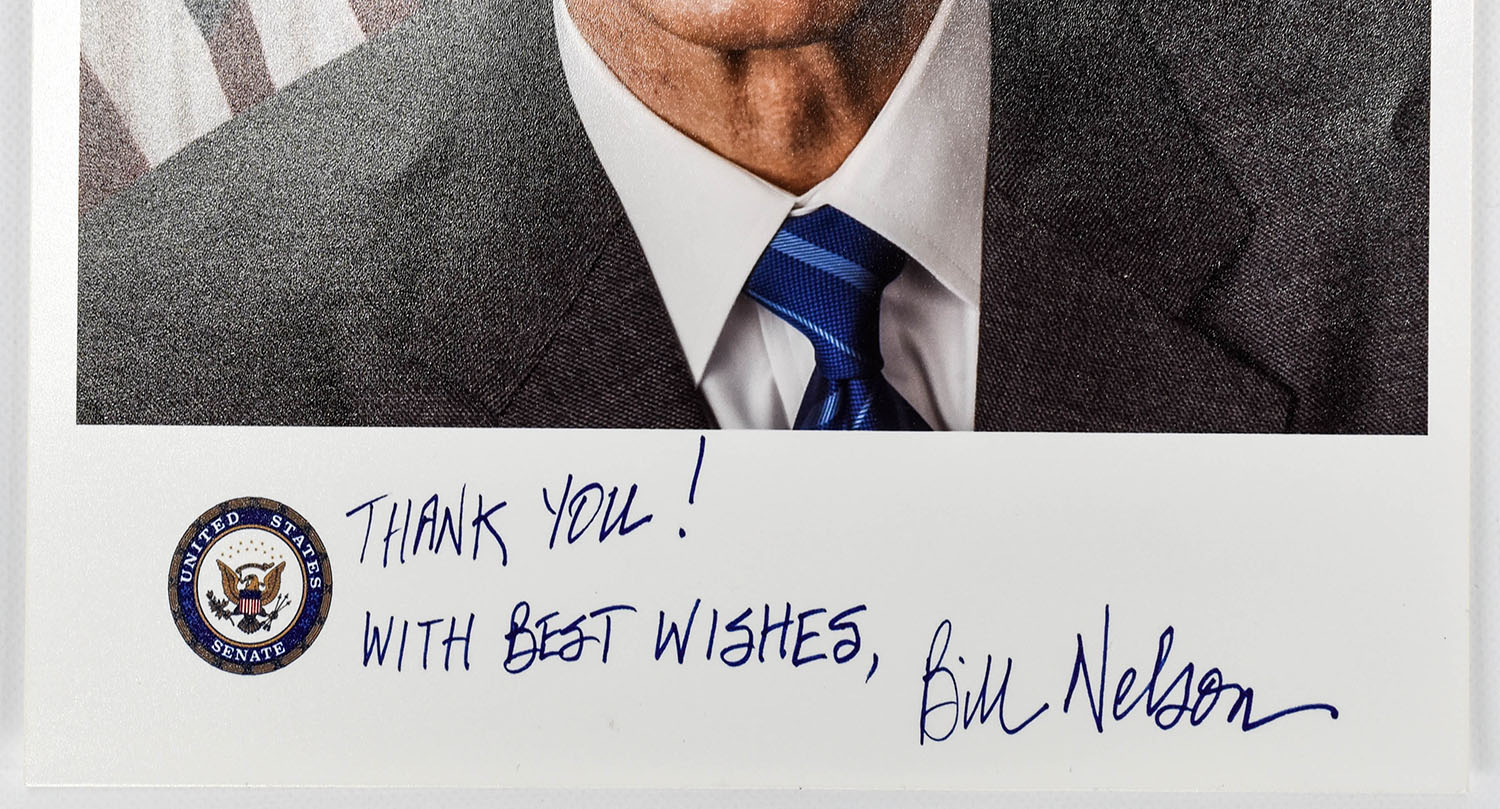 THANK YOU!
WITH BEST WISHES,
Bill Nelson
UNITED STATES
SENATE